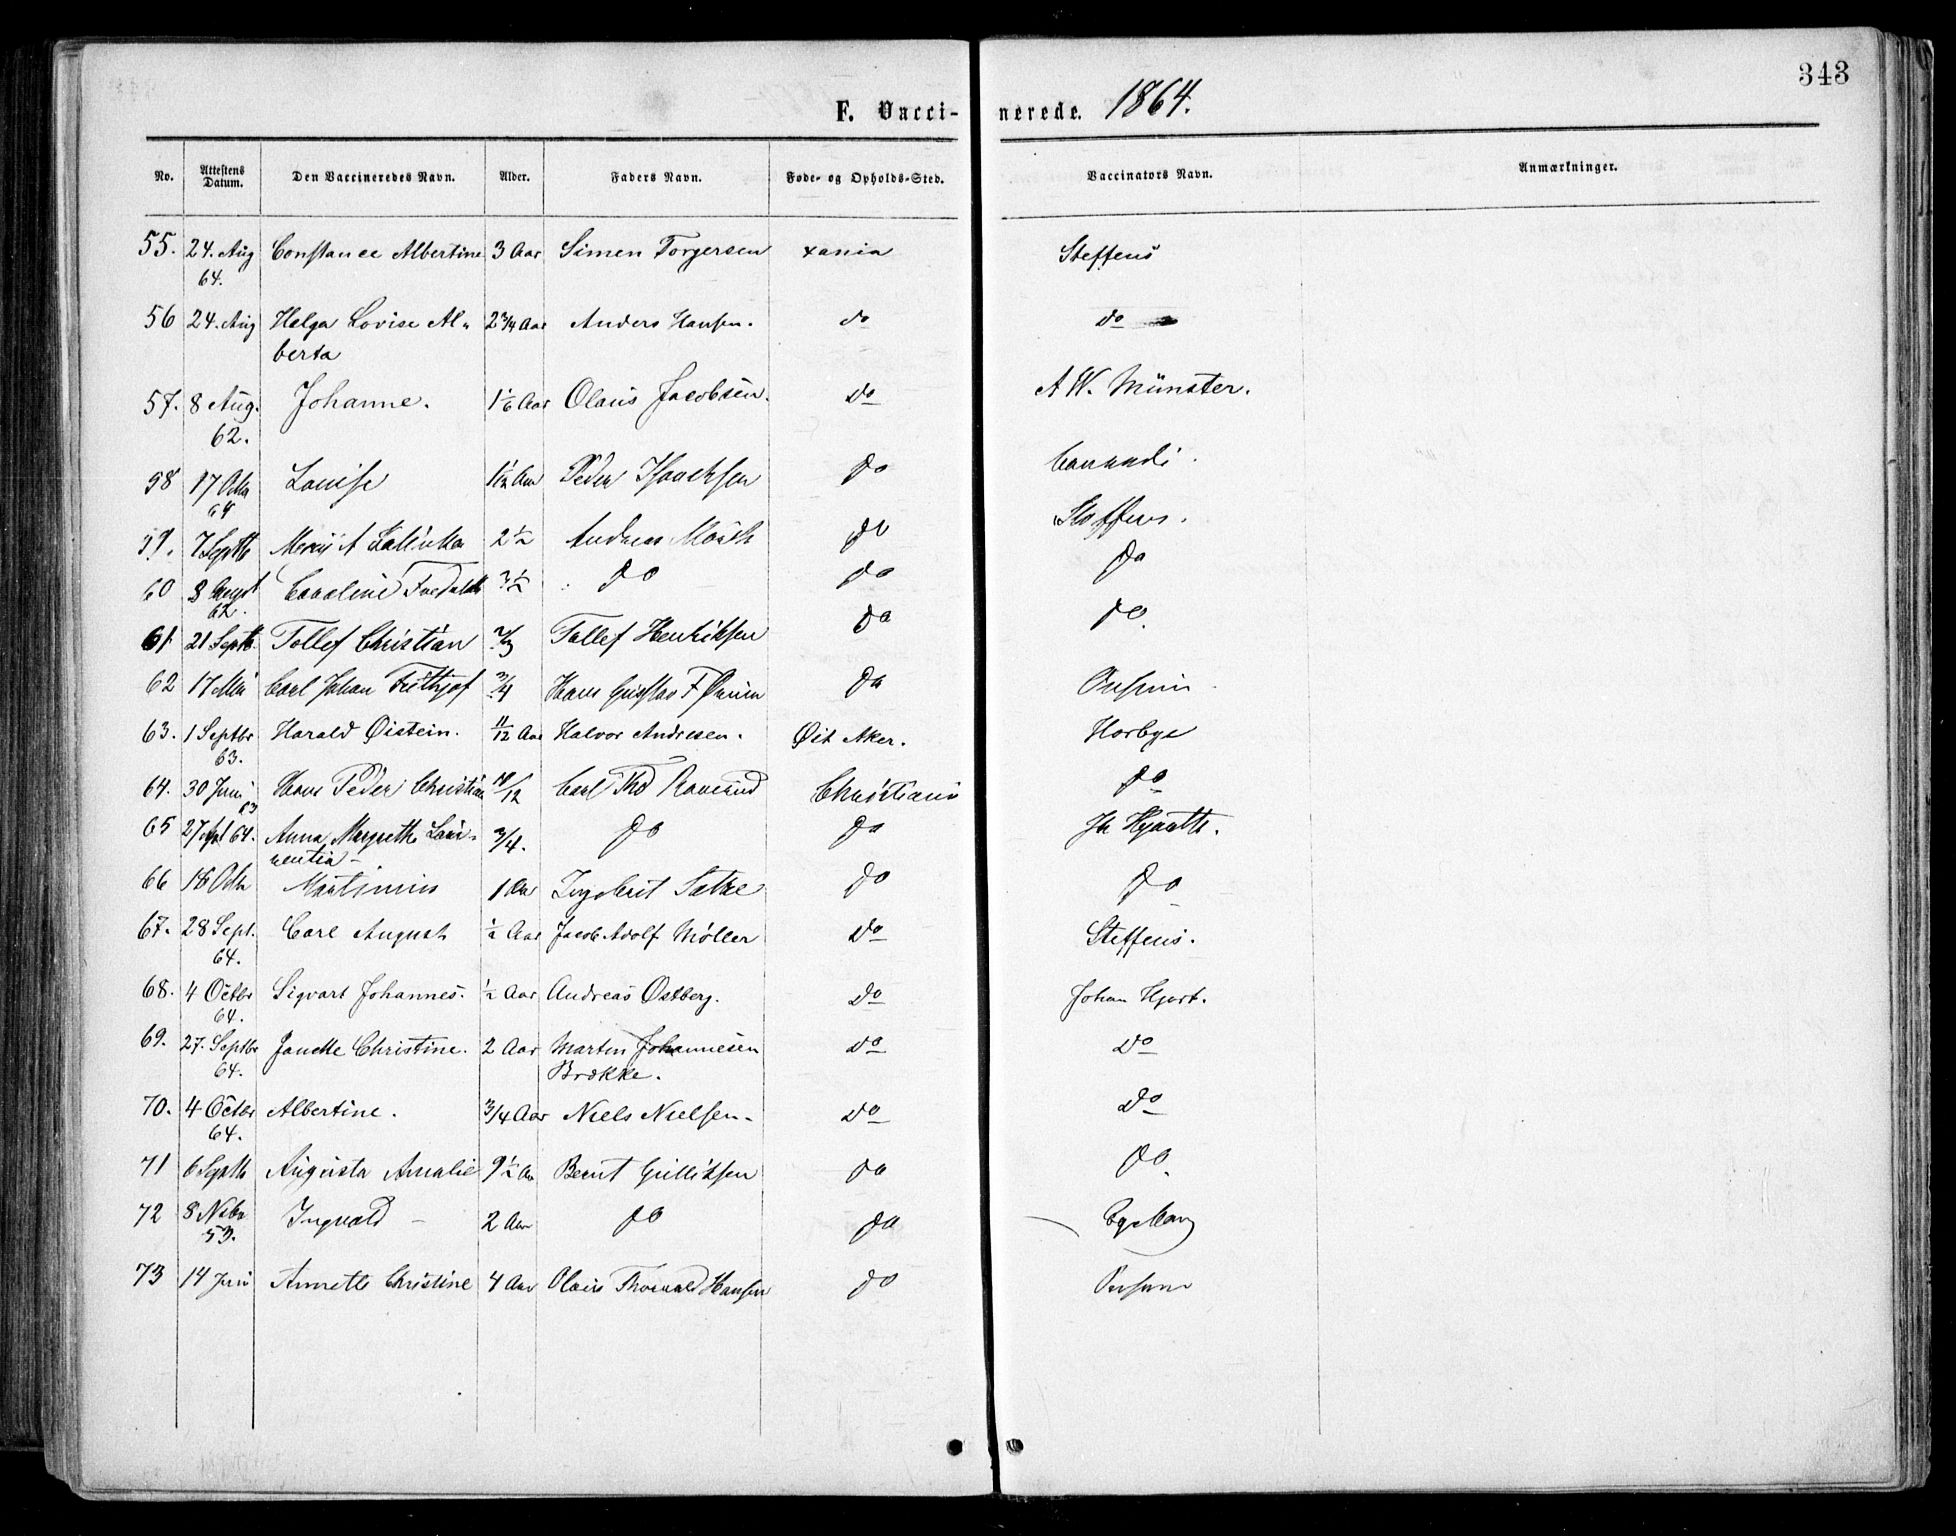 343
F. Vaccinerede. 1864.
No. Attestens Datum. Den Vaccineredes Navn. Alder. Faders Navn. Føde- og Opholds-Sted. Vaccinators Navn. Anmærkninger.
55. 24. Aug 64. Constance Albertine 3 Aar Simen Torgersen xania Steffens
56 24. Aug Helga Lovise Al- 2 3/4 Aar Anders Hansen. do do
berta
57. 8 Aug. 62. Johanne. 1 1/6 Aar Olaus Jacobsen. do A W. Münster.
58 17 Octr 64 Louise 1 1/2 Aar Peder Isaachsen do
59. 7 Septb 2 1/2 Andreas do Steffens.
60 8 August 62. Caroline 3 1/2 do do do
61 21 Septb. Tollef Christian 2/3 Tollef Henriksen do do.
62 17 Mai Carl Johan Frithjof 3/4 Hans Gustav F do
63. 1 Septbr 63. Harald Øistein. 11/12 Aar Halvor Andresen. Øst Aker. Horbye
64. 30 Juni 63 Hans Peder Christian 10/12 Carl Thd Christiania do
65 27 Apl 64. Anna Margrethe Lau- 3/4. do do Jh Hjorth.
rentia
66 18 Octr Martinius 1 Aar Ingebrit Sætre do do
67. 28 Sept. 64. Carl August 1/2 Aar Jacob Adolf Møller do Steffens.
68. 4 Octbr 64. Sigvart Johannes. 1/2 Aar Andreas Østberg. do Johan Hjort.
69. 27. Septbr 64. Janette Christine. 2 Aar Martin Johannesen do do
Brække.
70. 4 Octbr 64. Albertine. 3/4 Aar Niels Nielsen. do do
71 6 Septb Augusta Amalie 9 1/2 Aar Bernt Gulliksen do do.
72 8 Nobr 53. Ingvald 2 Aar do do Egeberg
73 14 Juni Annette Christine 4 Aar Olaus Thorvald Hansen do